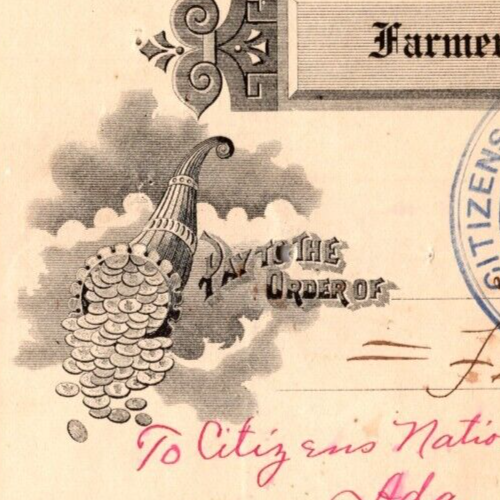 Farmer
CITIZENS
PAY TO THE
ORDER OF
To Citizens Natio
Ada